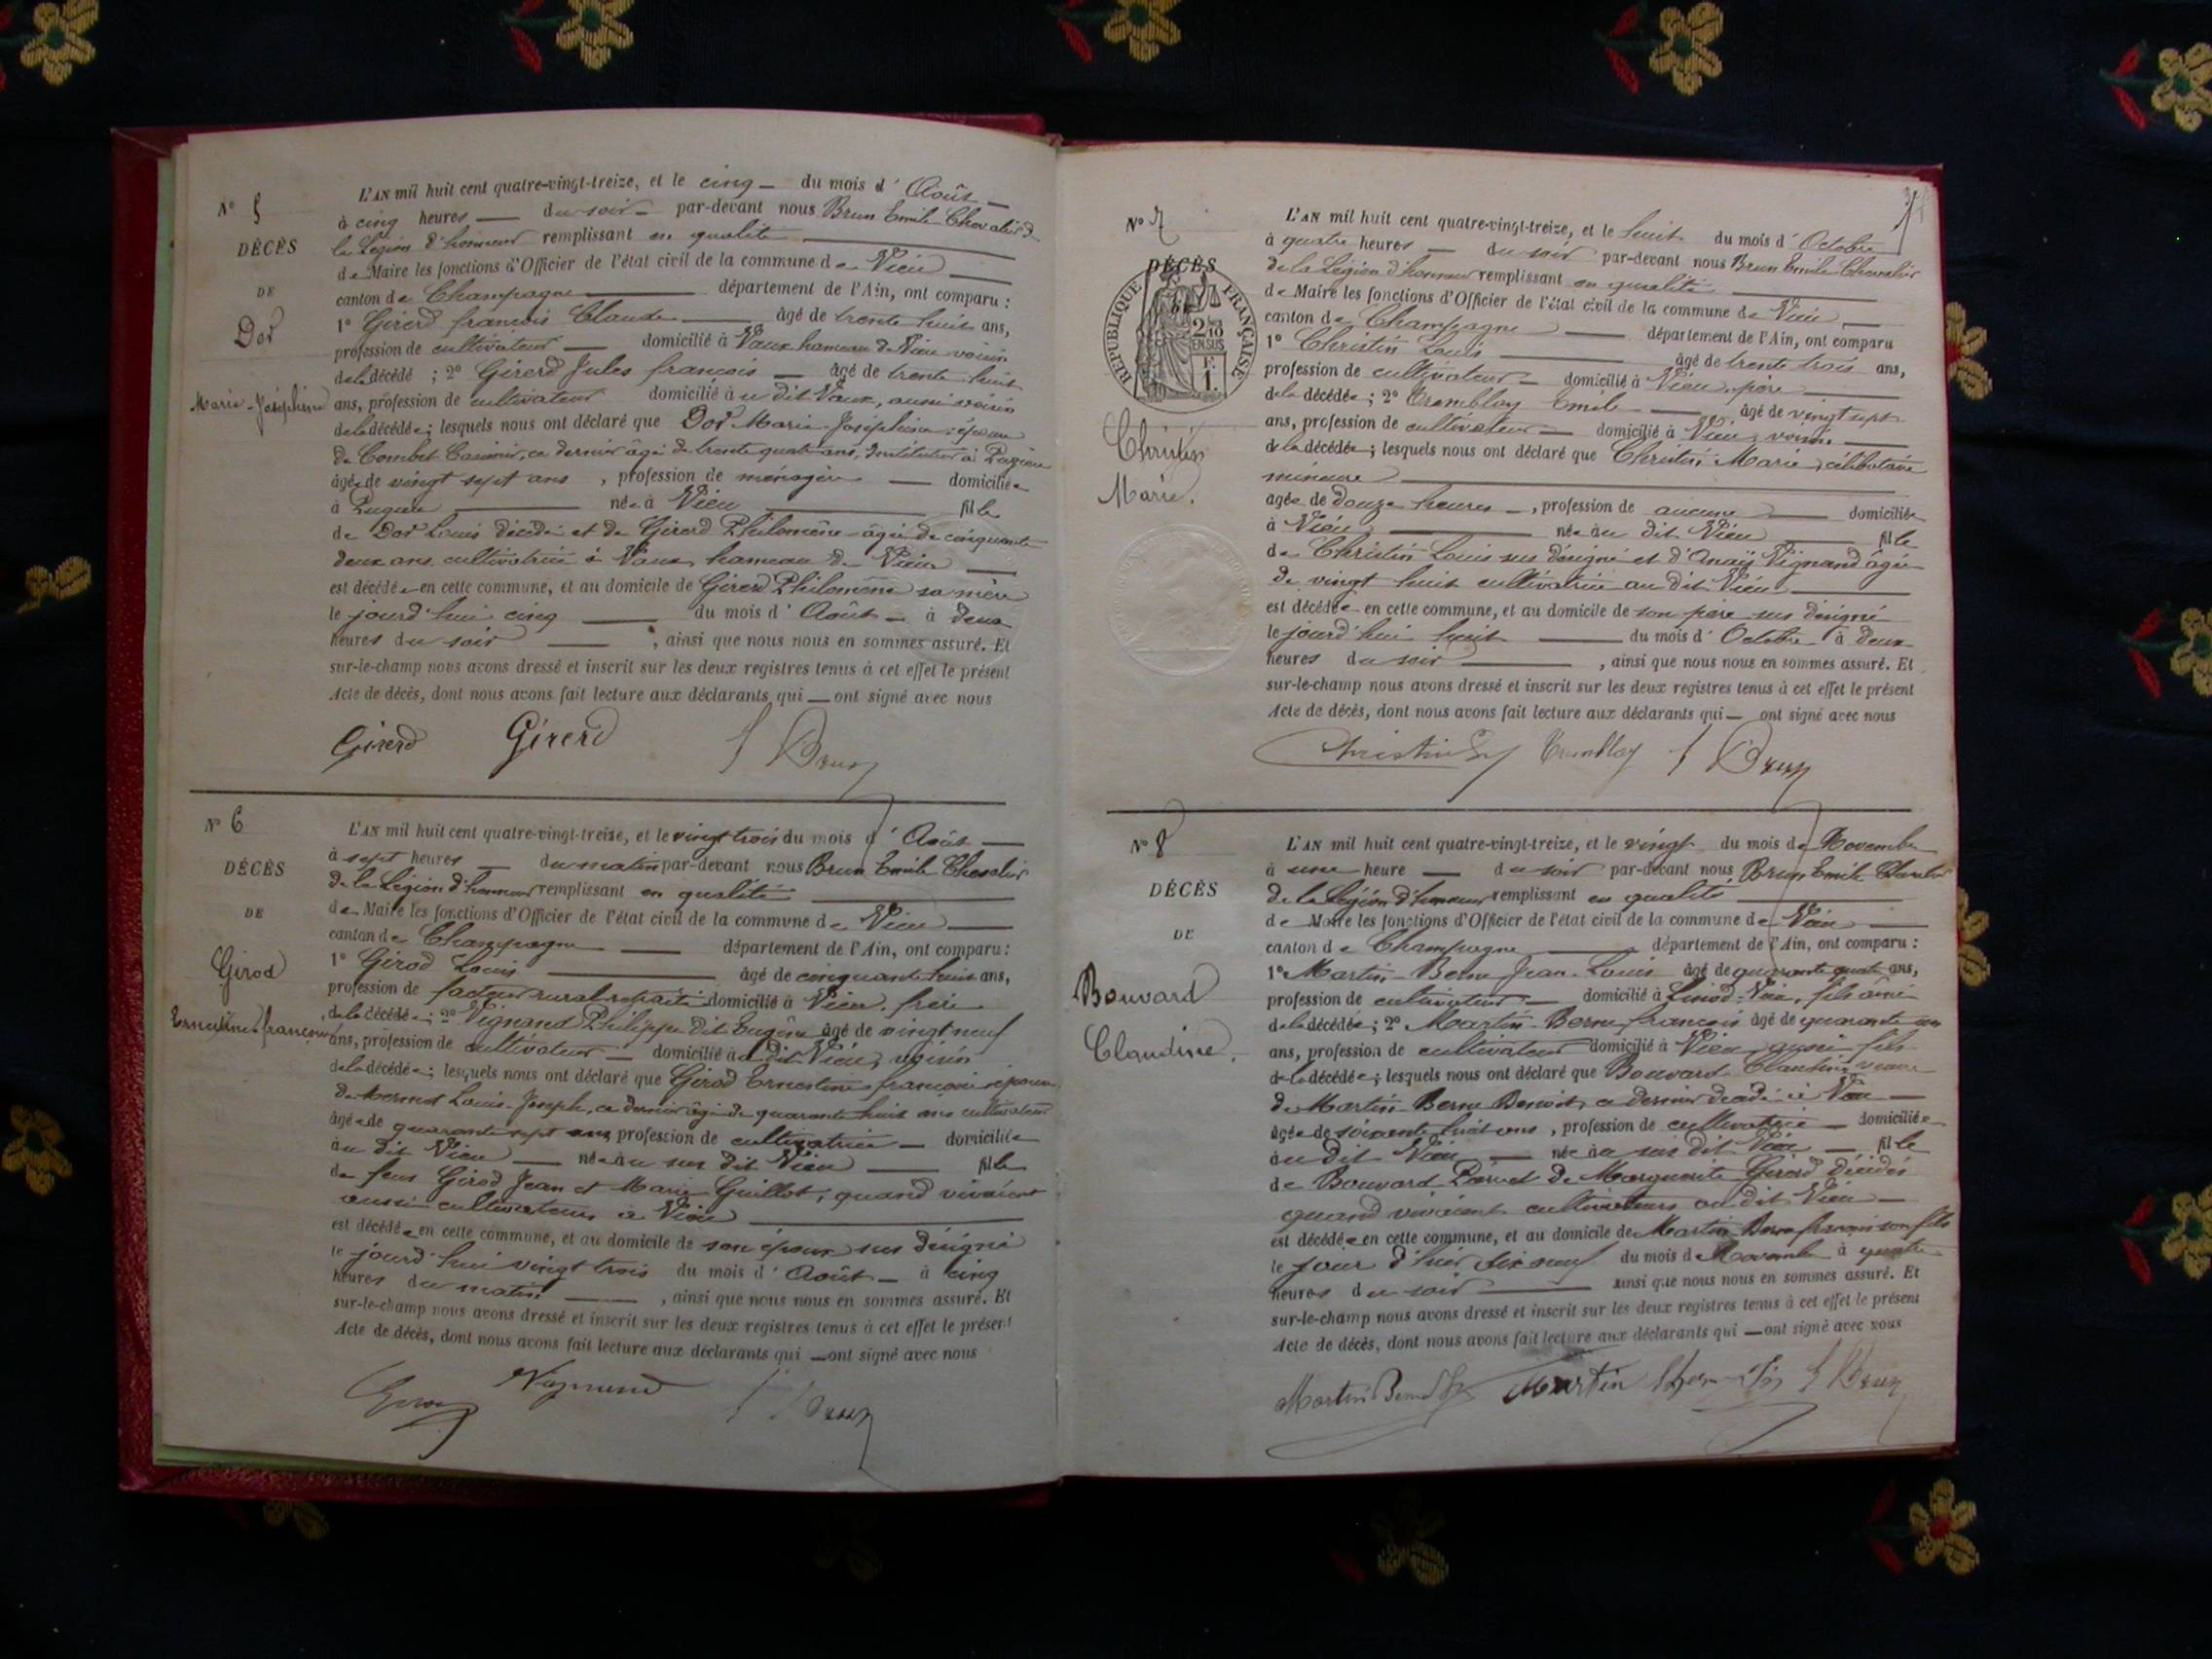 N° 5
DÉCÈS
DE
Dor
Marie-Joséphine
L'AN mil huit cent quatre-vingt-treize, et le cinq du mois d'Août
à cinq heures du soir par-devant nous Brun Emile Chevalier de
la Légion d'honneur remplissant en qualité
de Maire les fonctions d'Officier de l'état civil de la commune de Vieu
canton de Champagne département de l'Ain, ont comparu :
1° Girerd françois Claude âgé de trente huit ans,
profession de cultivateur domicilié à Vaux hameau de Vieu voisin
de la décédé ; 2° Girerd Jules françois âgé de trente huit
ans, profession de cultivateur domicilié à u dit Vaux, aussi voisin
de la décédée ; lesquels nous ont déclaré que Dor Marie-Joséphine épouse
de Combet Casimir, ce dernier âgé de trente quatre ans, Instituteur à Pugieu
âgée de vingt sept ans, profession de ménagère domiciliée
à Pugieu née à Vieu fille
de Dor Louis décédé et de Girerd Philomène âgée de cinquante
deux ans cultivatrice à Vaux hameau de Vieu
est décédée en cette commune, et au domicile de Girerd Philomène sa mère
le jourd'hui cinq du mois d'Août à deux
heures du soir, ainsi que nous nous en sommes assuré. Et
sur-le-champ nous avons dressé et inscrit sur les deux registres tenus à cet effet le présent
Acte de décès, dont nous avons fait lecture aux déclarants qui ont signé avec nous
Girerd Girerd E Brun
N° 6
DÉCÈS
DE
Girod
Ernestine françoise
L'AN mil huit cent quatre-vingt-treize, et le vingt trois du mois d'Août
à sept heures du matin par-devant nous Brun Emile Chevalier
de la Légion d'honneur remplissant en qualité
de Maire les fonctions d'Officier de l'état civil de la commune de Vieu
canton de Champagne département de l'Ain, ont comparu :
1° Girod Louis âgé de cinquante huit ans,
profession de facteur rural retraité domicilié à Vieu, frère
de la décédée ; 2° Vignand Philippe dit Eugène âgé de vingt neuf
ans, profession de cultivateur domicilié à u dit Vieu, voisin
de la décédée ; lesquels nous ont déclaré que Girod Ernestine françoise épouse
de Louis-Joseph, ce dernier âgé de quarante huit ans cultivateur
âgée de quarante sept ans, profession de cultivatrice domiciliée
àu dit Vieu née àu sus dit Vieu fille
de feus Girod Jean et Marie Guillot, quand vivaient
aussi cultivateurs à Vieu
est décédée en cette commune, et au domicile de son époux sus désigné
le jourd'hui vingt trois du mois d'Août à cinq
heures du matin, ainsi que nous nous en sommes assuré. Et
sur-le-champ nous avons dressé et inscrit sur les deux registres tenus à cet effet le présent
Acte de décès, dont nous avons fait lecture aux déclarants qui ont signé avec nous
Girod Vignand E Brun
N° 7
DÉCÈS
RÉPUBLIQUE FRANÇAISE
2/10
EN SUS
F.
1.
Christin
Marie.
L'AN mil huit cent quatre-vingt-treize, et le huit du mois d'Octobre
à quatre heures du soir par-devant nous Brun Emile Chevalier
de la Légion d'honneur remplissant en qualité
de Maire les fonctions d'Officier de l'état civil de la commune de Vieu
canton de Champagne département de l'Ain, ont comparu
1° Christin Louis âgé de trente trois ans,
profession de cultivateur domicilié à Vieu, père
de la décédée ; 2° Tremblay Emile âgé de vingt sept
ans, profession de cultivateur domicilié à Vieu, voisin
de la décédée ; lesquels nous ont déclaré que Christin Marie, célibataire
mineure
agée de douze heures, profession de aucune domiciliée
à Vieu née àu dit Vieu fille
de Christin Louis sus désigné et d'Anaïs Vignand âgée
de vingt huit cultivatrice au dit Vieu
est décédée en cette commune, et au domicile de son père sus désigné
le jourd'hui huit du mois d'Octobre à deux
heures du soir, ainsi que nous nous en sommes assuré. Et
sur-le-champ nous avons dressé et inscrit sur les deux registres tenus à cet effet le présent
Acte de décès, dont nous avons fait lecture aux déclarants qui ont signé avec nous
Christin Tremblay E Brun
N° 8
DÉCÈS
DE
Bouvard
Claudine.
L'AN mil huit cent quatre-vingt-treize, et le vingt du mois de Novembre
à une heure du soir par-devant nous Brun Emile Chevalier
de la Légion d'honneur remplissant en qualité
de Maire les fonctions d'Officier de l'état civil de la commune de Vieu
canton de Champagne département de l'Ain, ont comparu :
1° Martin-Berne Jean-Louis âgé de quarante quatre ans,
profession de cultivateur domicilié à Vieu, fils aîné
de la décédée ; 2° Martin-Berne françois âgé de quarante un
ans, profession de cultivateur domicilié à Vieu aussi fils
de la décédée ; lesquels nous ont déclaré que Bouvard Claudine, veuve
de Martin-Berne Benoit, ce dernier décédé à Vieu
âgée de soixante huit ans, profession de cultivatrice domiciliée
àu dit Vieu née àu sus dit Vieu fille
de Bouvard et de Marguerite Girerd décédés
quand vivaient cultivateurs au dit Vieu
est décédée en cette commune, et au domicile de Martin Berne françois son fils
le jour d'hier dix neuf du mois de Novembre à quatre
heures du soir ainsi que nous nous en sommes assuré. Et
sur-le-champ nous avons dressé et inscrit sur les deux registres tenus à cet effet le présent
Acte de décès, dont nous avons fait lecture aux déclarants qui ont signé avec nous
Martin Berne Martin Berne E Brun